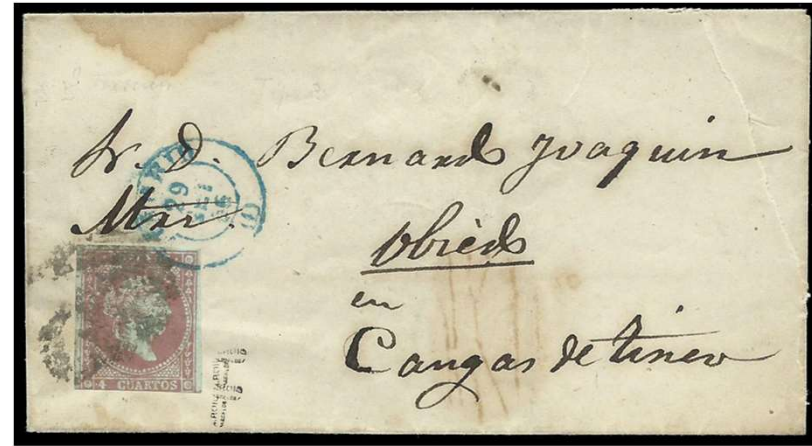 Sr. D. Bernardo Joaquin
Obiedo
en
Cangas de tineo
29
4 CUARTOS